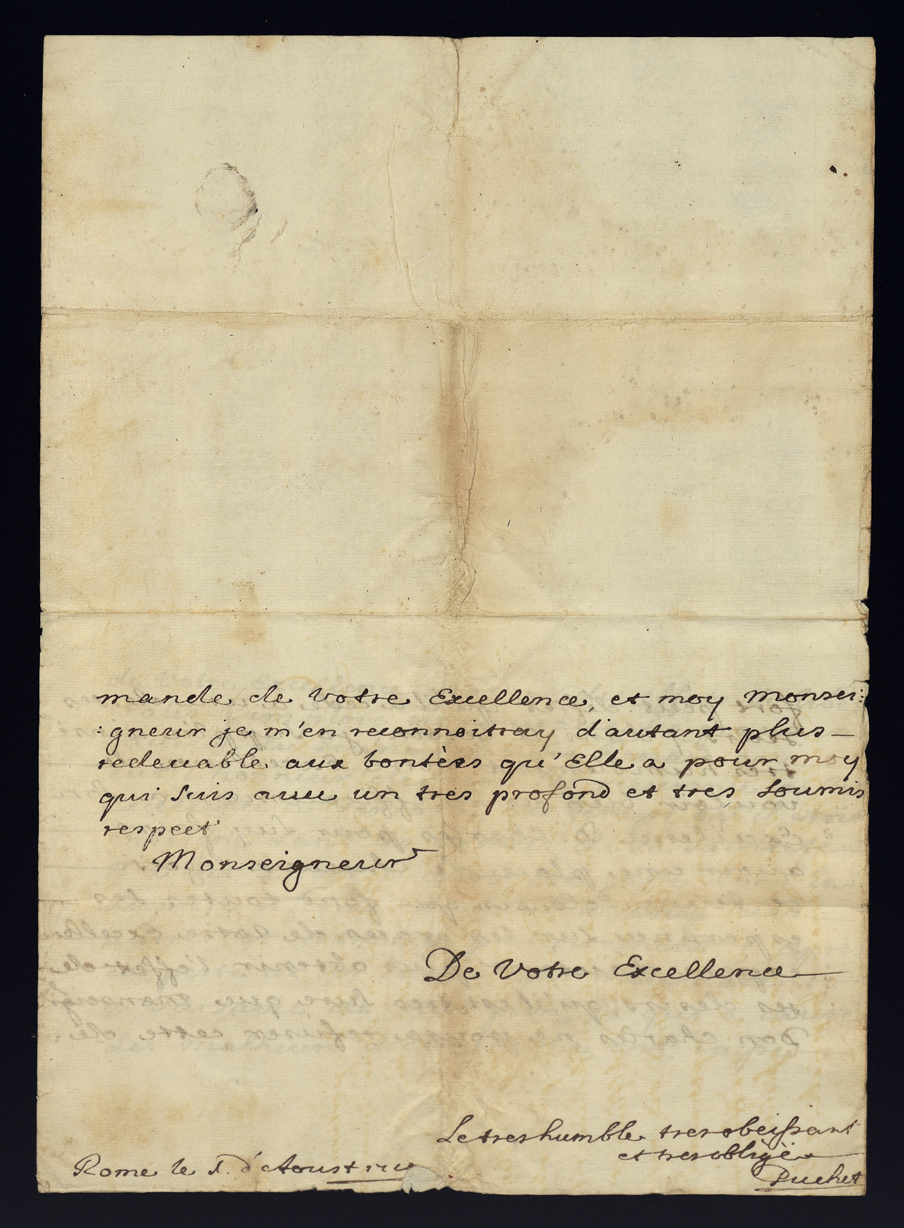 mande de Votre Excellence, et moy Monsei:
:gneur je m'en reconnoitray d'autant plus
redeuable aux bontès qu'Elle a pour moy
qui suis auec un tres profond et tres soumis
respect
Monseigneur
De Votre Excellence
Le tres humble tres obeissant
et tres obligè
Puchet
Rome le d'Aoust